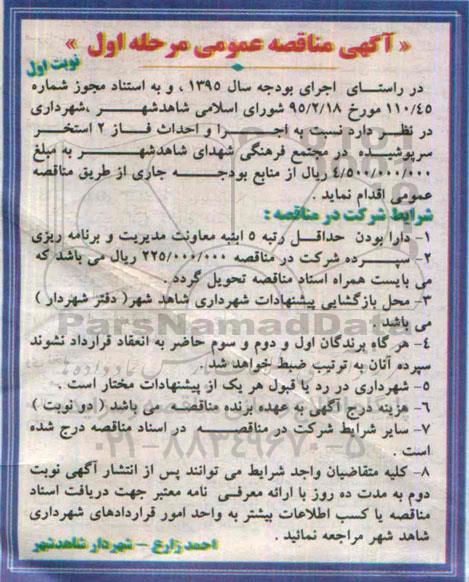 « آگهی مناقصه عمومی مرحله اول »
نوبت اول
در راستای اجرای بودجه سال ۱۳۹۵ ، و به استناد مجوز شماره
۱۱۰/۴۵ مورخ ۹۵/۲/۱۸ شورای اسلامی شاهدشهر ،شهرداری
در نظر دارد نسبت به اجرا و احداث فاز ۲ استخر
سرپوشیده در مجتمع فرهنگی شهدای شاهدشهر به مبلغ
۴/۵۰۰/۰۰۰/۰۰۰ ریال از منابع بودجه جاری از طریق مناقصه
عمومی اقدام نماید .
شرایط شرکت در مناقصه :
۱- دارا بودن حداقل رتبه ۵ ابنیه معاونت مدیریت و برنامه ریزی
۲- سپرده شرکت در مناقصه ۲۲۵/۰۰۰/۰۰۰ ریال می باشد که
می بایست همراه اسناد مناقصه تحویل گردد .
۳- محل بازگشایی پیشنهادات شهرداری شاهد شهر ( دفتر شهردار )
می باشد .
۴- هر گاه برندگان اول و دوم و سوم حاضر به انعقاد قرارداد نشوند
سپرده آنان به ترتیب ضبط خواهد شد .
۵- شهرداری در رد یا قبول هر یک از پیشنهادات مختار است .
۶- هزینه درج آگهی به عهده برنده مناقصه می باشد ( دو نوبت )
۷- سایر شرایط شرکت در مناقصه در اسناد مناقصه درج شده
است .
۸- کلیه متقاضیان واجد شرایط می توانند پس از انتشار آگهی نوبت
دوم به مدت ده روز با ارائه معرفی نامه معتبر جهت دریافت اسناد
مناقصه یا کسب اطلاعات بیشتر به واحد امور قراردادهای شهرداری
شاهد شهر مراجعه نمائید .
احمد زارع – شهردار شاهدشهر
ParsNamadData
۰۲۱-۸۸۳۴۹۶۷۰-۵